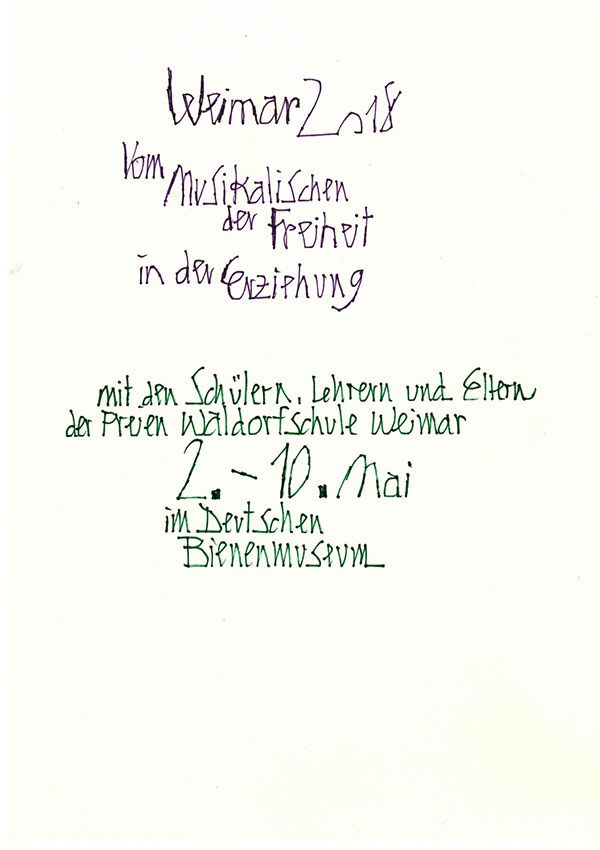 Weimar 2018
Vom Musikalischen
der Freiheit
in der Erziehung
mit den Schülern, Lehrern und Eltern
der Freien Waldorfschule Weimar
2. – 10. Mai
im Deutschen
Bienenmuseum